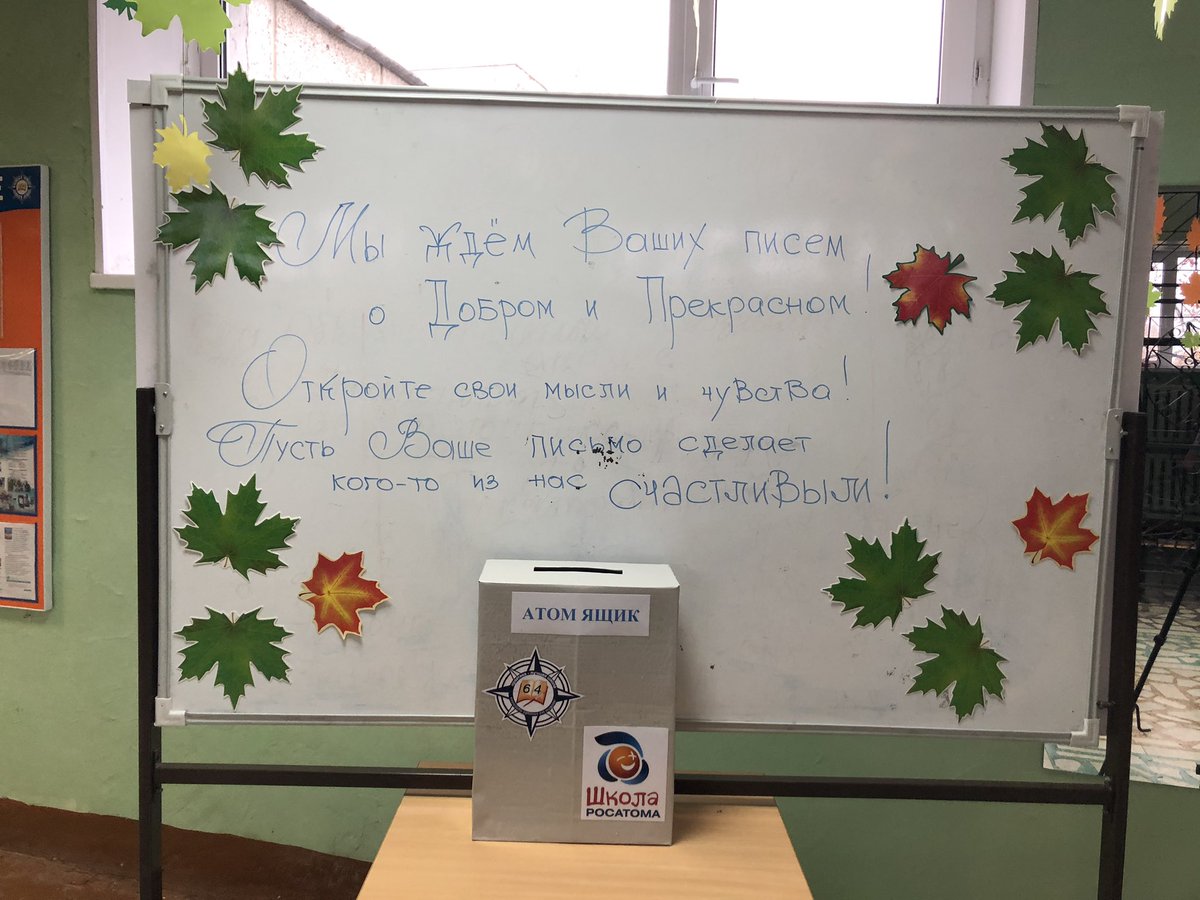 Мы ждём Ваших писем
о Добром и Прекрасном!
Откройте свои мысли и чувства!
Пусть Ваше письмо сделает
кого-то из нас счастливыли!
АТОМ ЯЩИК
64
Школа
РОСАТОМА